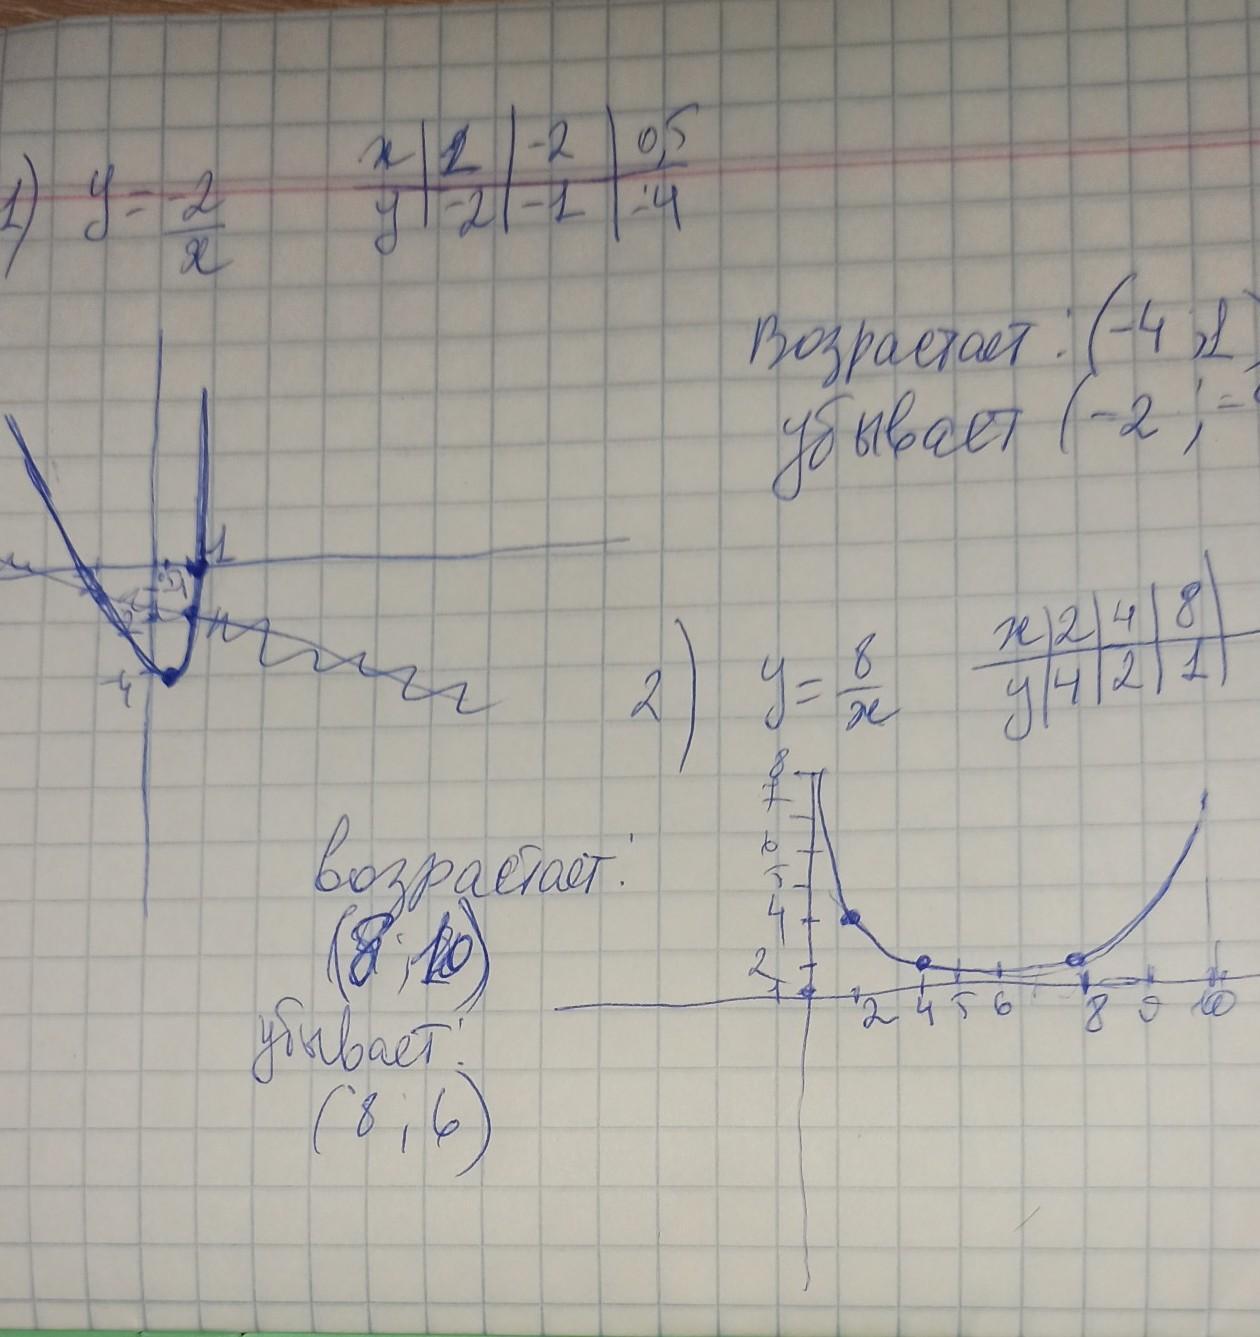 1) y = -2/x
x | 1 | -2 | 0,5
y | -2 | -1 | -4
Возрастает: (-4;1)
убывает (-2;-
1
-4
2) y = 8/x
x | 2 | 4 | 8
y | 4 | 2 | 1
8
7
6
5
4
2
1
2 4 5 6 8 9 10
возрастает:
(8;10)
убывает:
(8;6)